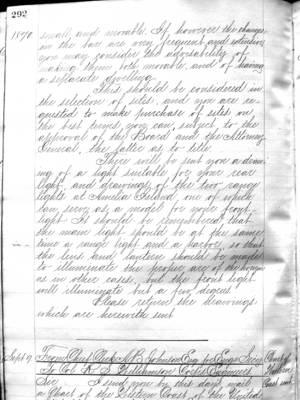 292
1870
small, and movable. If however the changes
in the bar are very frequent and extensive
you may consider the advisability of
making them both movable, and of having
a separate dwelling.
This should be considered in
the selection of sites, and you are re-
quested to make purchase of sites on
the best terms you can, subject to the
approval of the Board and the Attorney
General, the latter as to title.
There will be sent you a draw-
ing of a light suitable for your rear
light, and drawings of the two range
lights at Amelia Island, one of which
can serve as a model for your front
light. It should be remembered that
the main light should be at the same
time a range light and a harbor, so that
the lens and lantern should be made
to illuminate the proper arc of the horizon
as in other cases, but the front light
will illuminate but a few degrees.
Please return the drawings
which are herewith sent
Sept 9
From Chief Clerk A. B. Johnson Eng. for Engr Secy
To Col. R. S. Williamson Corps Engineers
Sir, I send you by this day's mail
a Chart of the Western Coast of the United
Chart of
Western
Coast sent